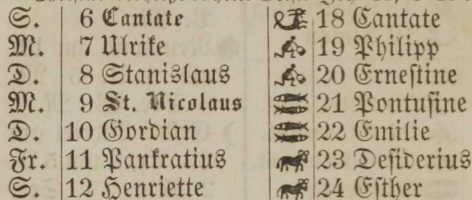 S. 6 Cantate 18 Cantate
M. 7 Ulrike 19 Philipp
D. 8 Stanislaus 20 Ernestine
M. 9 St. Nicolaus 21 Pontusine
D. 10 Gordian 22 Emilie
Fr. 11 Pankratius 23 Desiderius
S. 12 Henriette 24 Esther